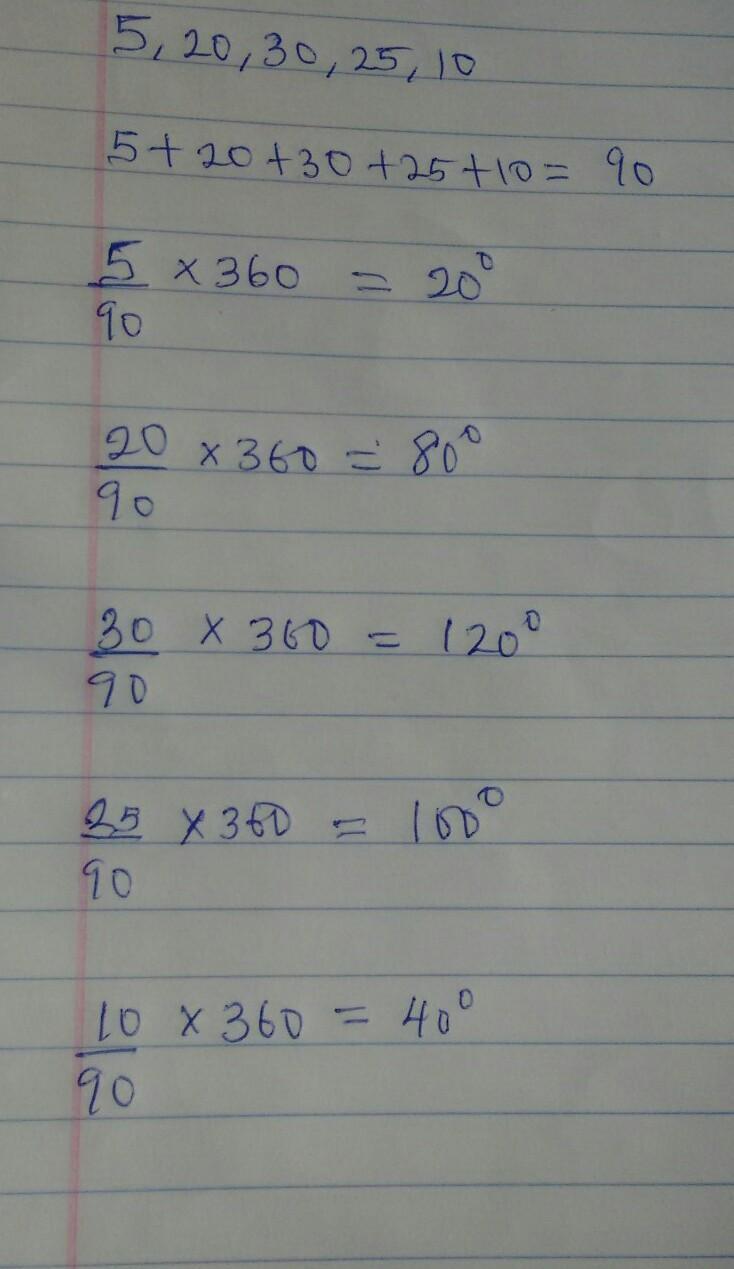 5, 20, 30, 25, 10
5 + 20 + 30 + 25 + 10 = 90
5/90 × 360 = 20⁰
20/90 × 360 = 80⁰
30/90 × 360 = 120⁰
25/90 × 360 = 100⁰
10/90 × 360 = 40⁰